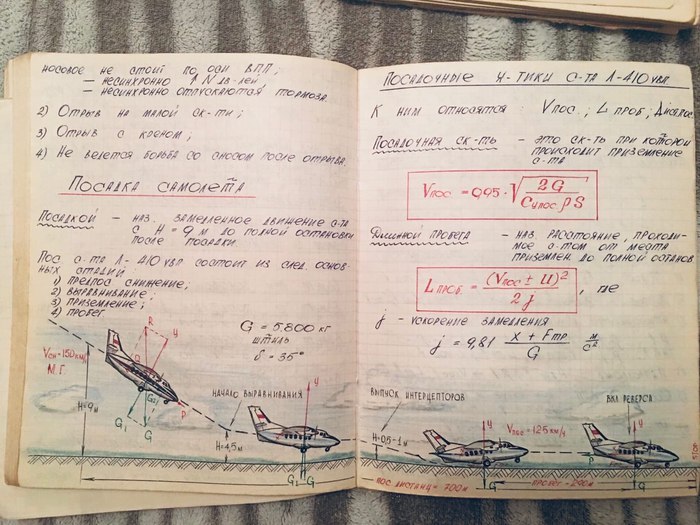 носовое не стоит по оси ВПП;
— несинхронно ↑ N дв-лей
— несинхронно отпускаются тормоза.
2) Отрыв на малой ск-ти;
3) Отрыв с креном;
4) Не ведется борьба со сносом после отрыва.
Посадка самолета
Посадкой — наз. замедленное движение с-та
с H = 9 м до полной остановки
после посадки.
Пос с-та Л-410 увп состоит из след. основ-
ных стадий
1) предпос снижение;
2) выравнивание;
3) приземление;
4) пробег
G = 5.800 кг
штиль
δ = 35°
Vсн = 150 км/ч
М.Г.
H = 9 м
R
Y
Q
G₂
G₁
G
P
начало выравнивания
H = 4,5 м
Y
G₂
G
Посадочные х-тики с-та Л-410 увп.
К ним относятся: Vпос.; L проб;
Посадочная ск-ть — это ск-ть при которой
происходит приземление
с-та
Vпос = 0,95 · √(2G / Cy пос ρS)
Длиной пробега — наз. расстояние, проходи-
мое с-том от места
приземлен. до полной останов
L проб = (Vпос ± U)² / 2j, где
j - ускорение замедления
j = 9,81 (X + Fтр) / G м/с²
выпуск интерцепторов
H = 0,5 - 1 м
Y
Vпос = 125 км/ч
G
вкл реверса
Y
P
G
пос дистанц = 700 м
пробег = 290 м